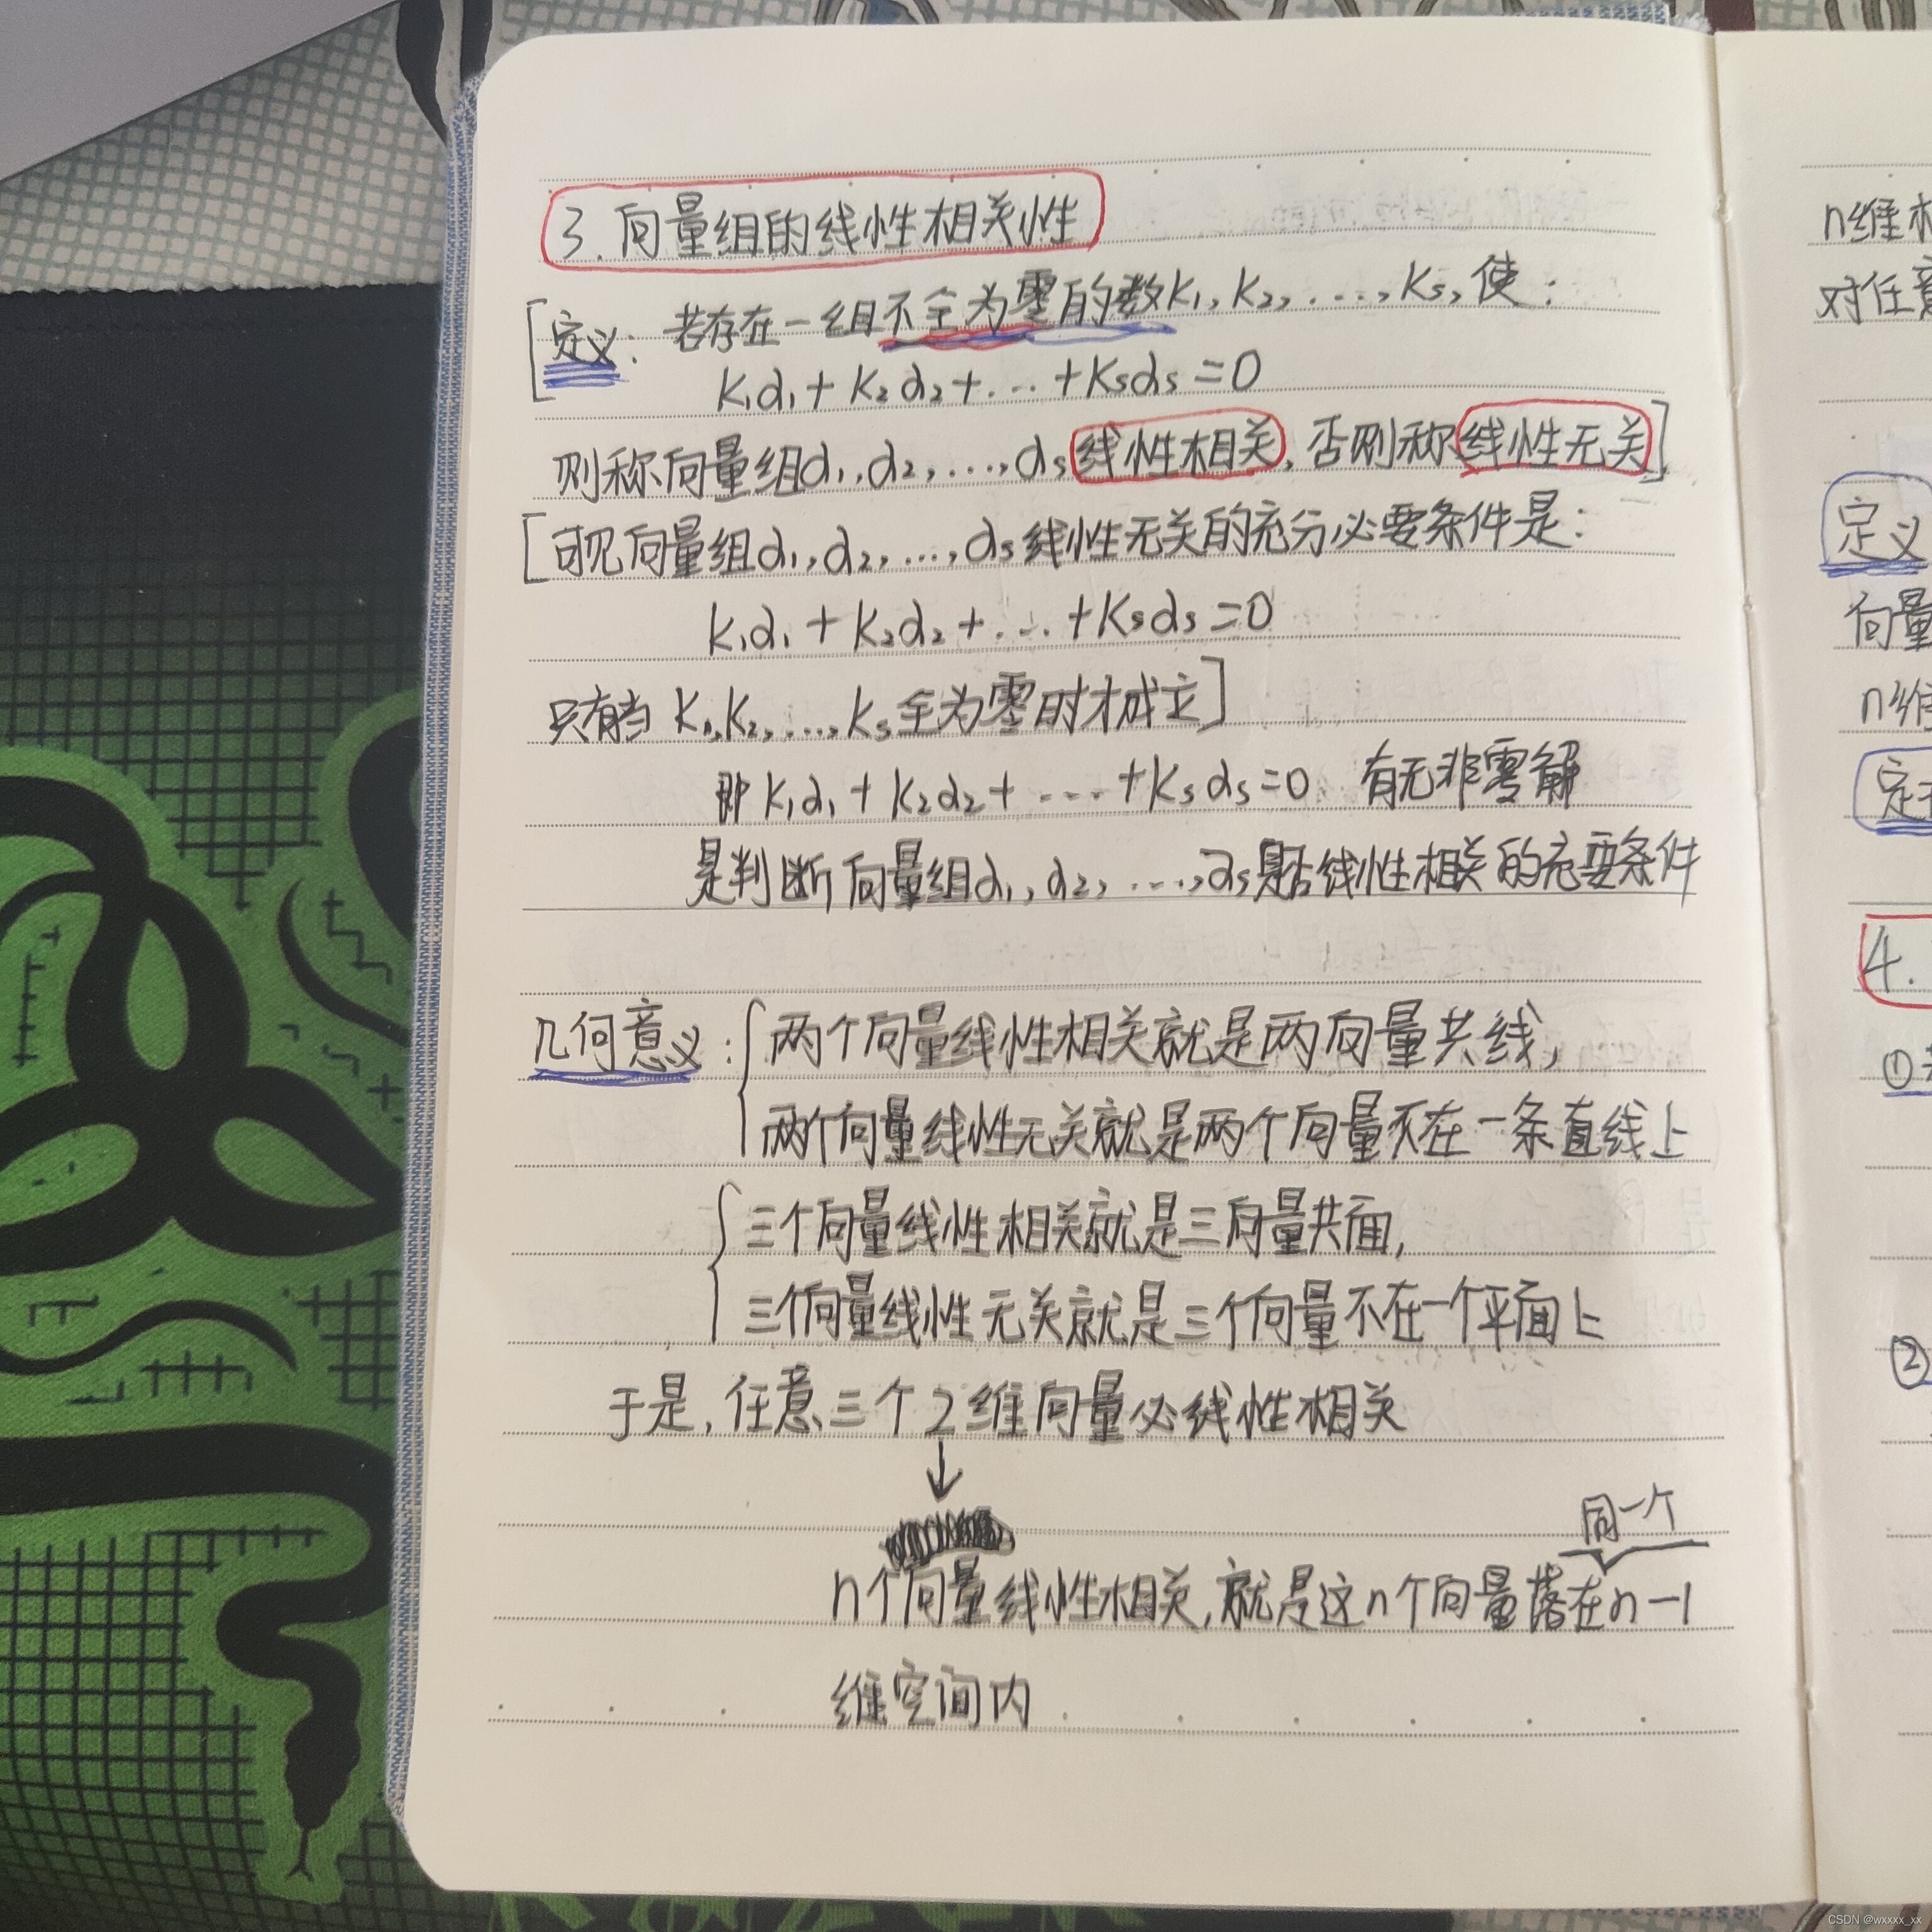 3. 向量组的线性相关性
[定义: 若存在一组不全为零的数K₁, K₂, ..., Ks, 使:
K₁α₁ + K₂α₂ + ... + Ksαs = 0
则称向量组α₁, α₂, ..., αs线性相关, 否则称线性无关].
[可见向量组α₁, α₂, ..., αs线性无关的充分必要条件是:
K₁α₁ + K₂α₂ + ... + Ksαs = 0
只有当 K₁, K₂, ..., Ks全为零时才成立]
即 K₁α₁ + K₂α₂ + ... + Ksαs = 0 有无非零解
是判断向量组α₁, α₂, ..., αs是否线性相关的充要条件
几何意义: { 两个向量线性相关就是两向量共线,
两个向量线性无关就是两个向量不在一条直线上
{ 三个向量线性相关就是三向量共面,
三个向量线性无关就是三个向量不在一个平面上
于是, 任意三个2维向量必线性相关
↓
同一个
n个向量线性相关, 就是这n个向量落在n-1
维空间内
n维
对任意
定义
向量
n维
定
4.
①
②
CSDN @wxxxx_xx